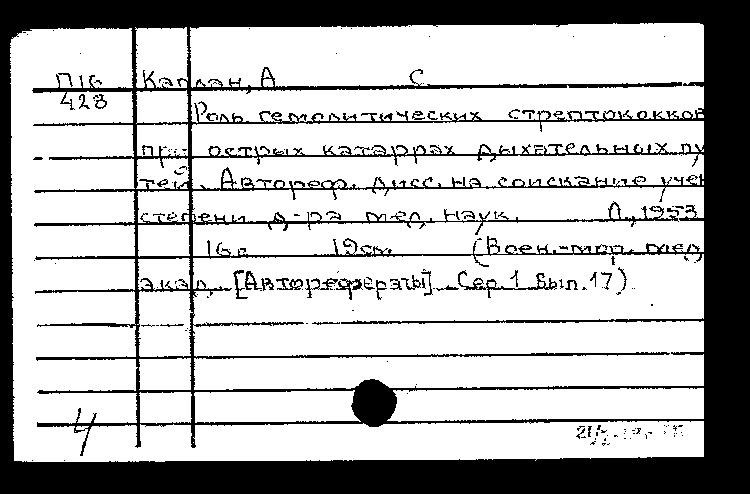 П16 Каплан, А С
428
Роль гемолитических стрептококков
при острых катаррах дыхательных пу
тей. Автореф. дисс. на соискание учен
степени д-ра мед. наук. Л., 1953
16 с. 19 см. (Воен.-мор. мед.
акад. [Авторефераты] Сер. 1 Вып. 17)
4